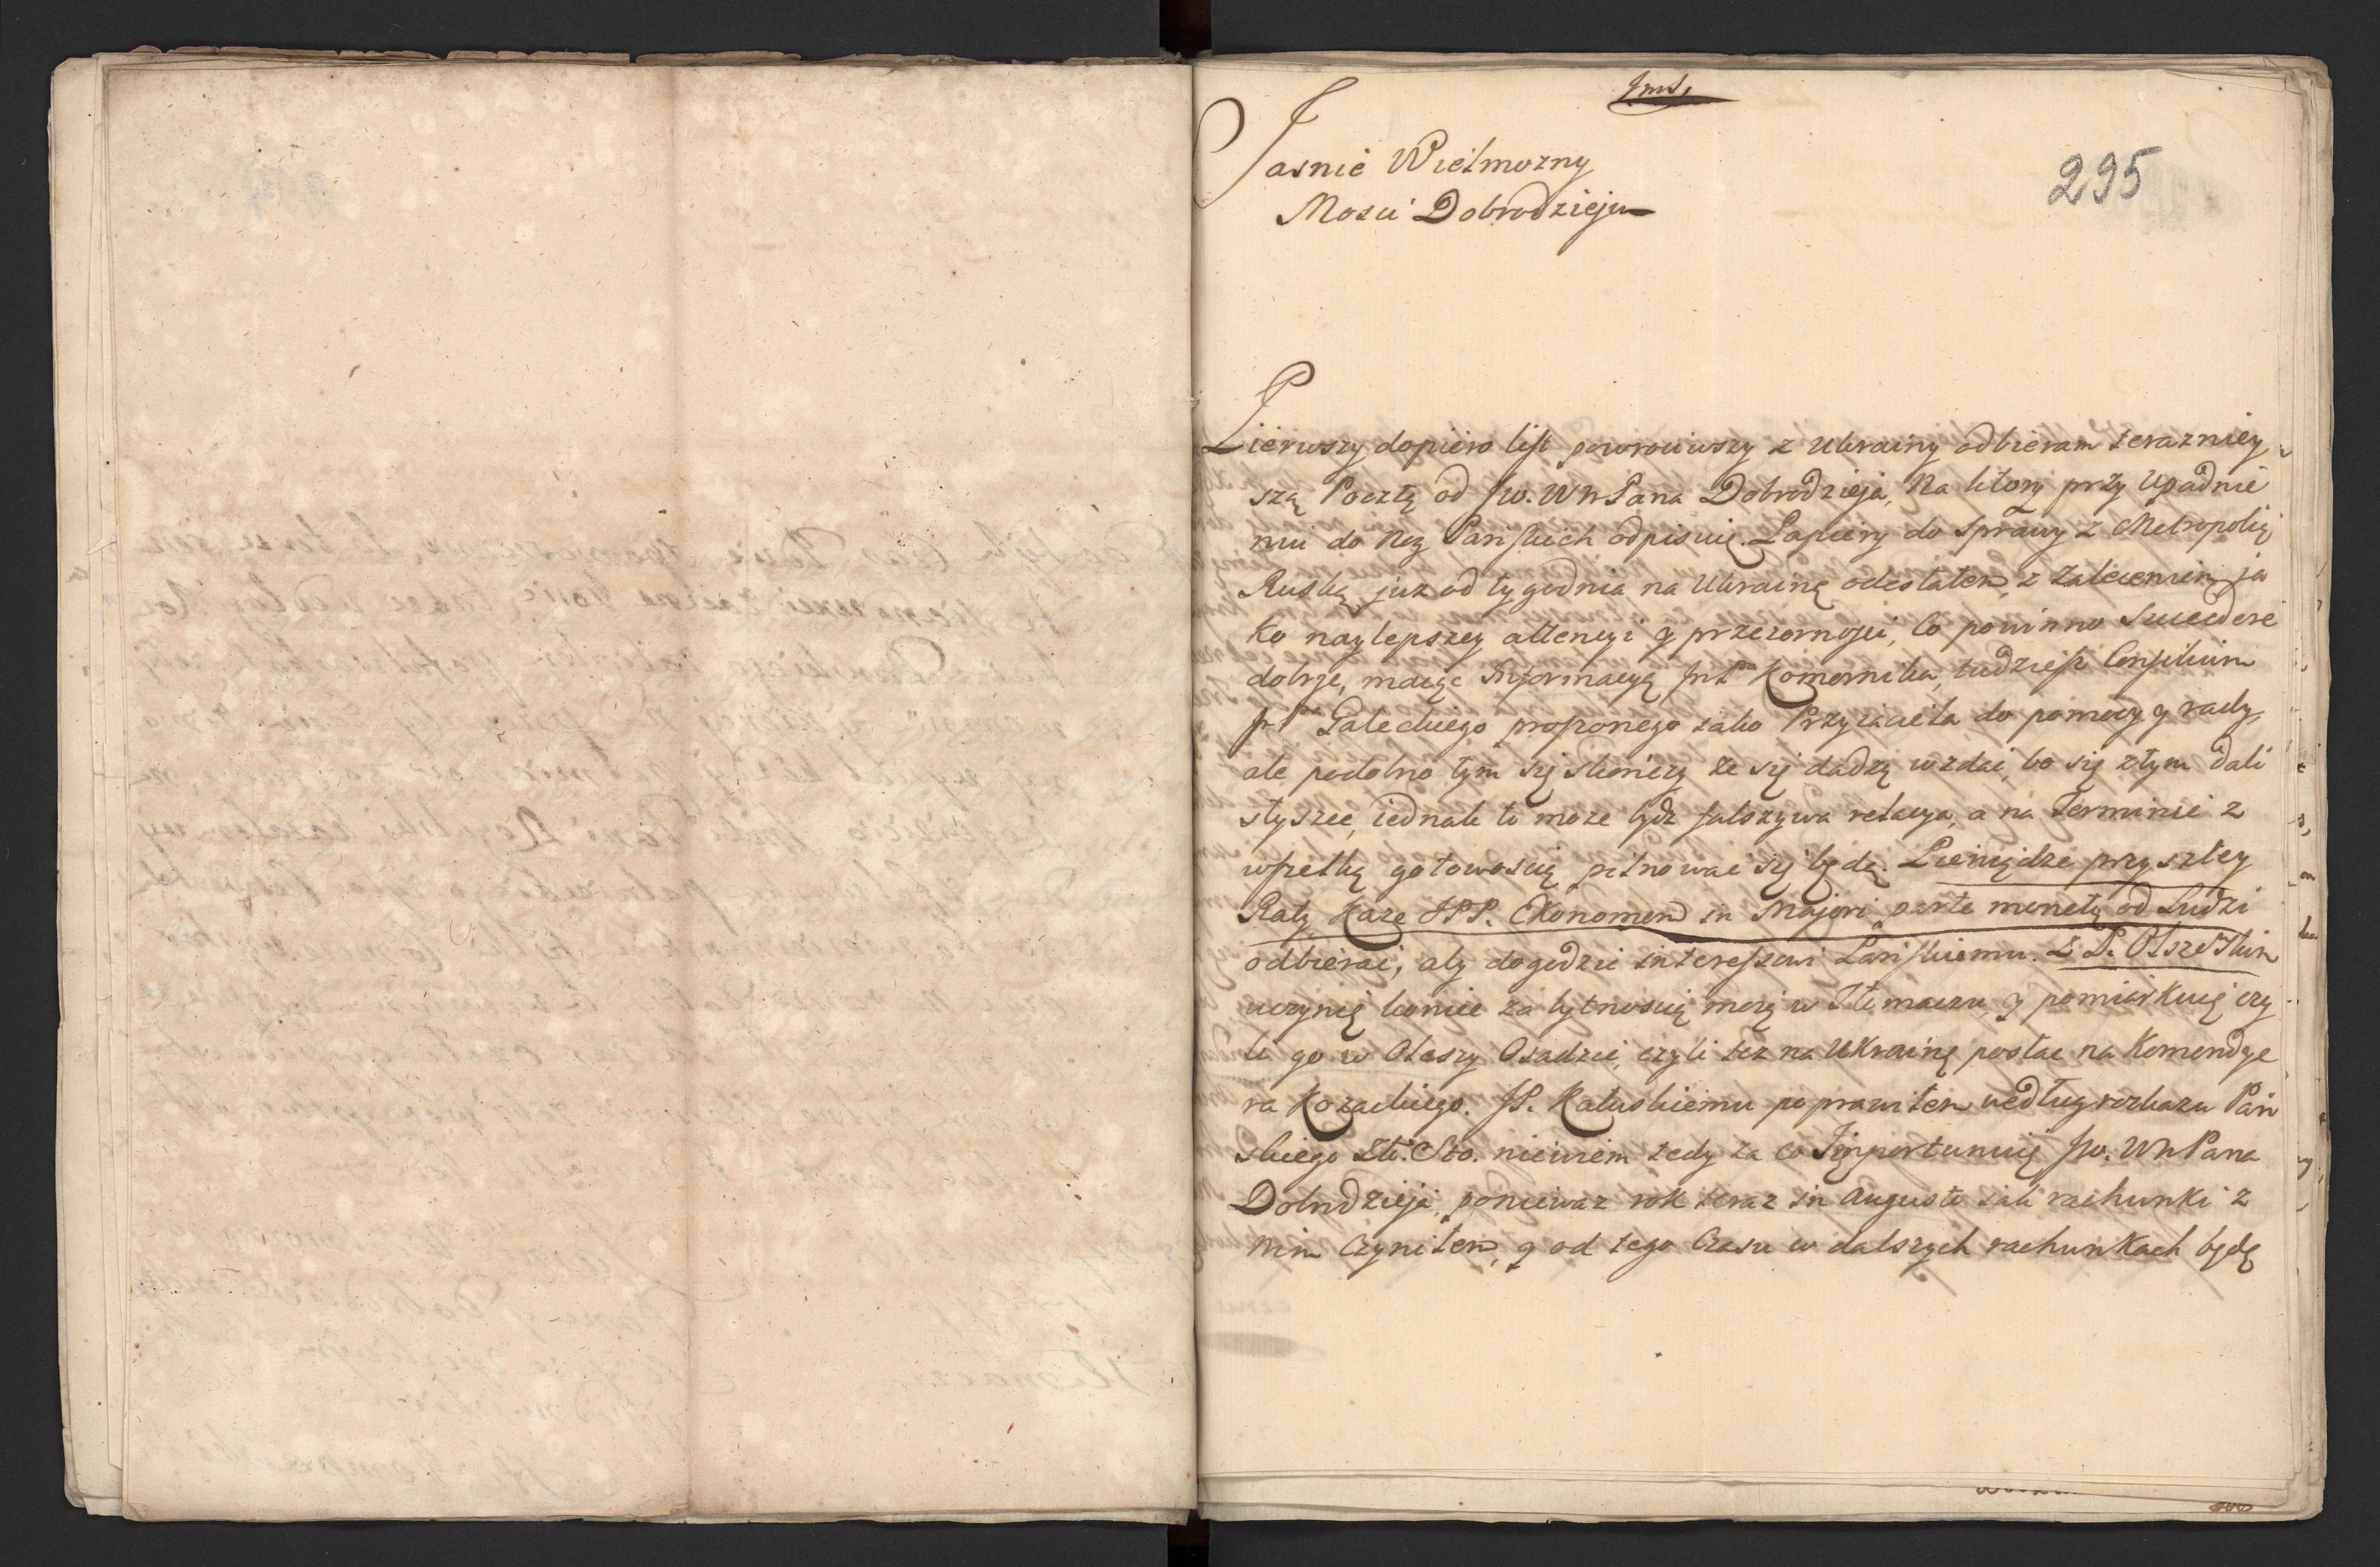 Jmś.
295
Jasnie Wielmozny
Mosci Dobrodzieju
Pierwszy dopiero list powrociwszy z Ukrainy odbieram terazniey
szą Pocztą od Jw. WM Pana Dobrodzieja, Na ktory przy Upadnie
niu do Nog Pańskich odpisuię. Papiery do Sprawy z Metropolią
Ruską już od tygodnia na Ukrainę odesłałem, z Zaleceniem ja
ko naylepszey attencyi y przezornosci, Co powinno Succedere
dobrze, maiąc Informacyą Komornika, tudziesz Consilium
Gałeckiego proponego iako Przyiaciela do pomocy y rady
ale podobno tym się skończy że się dadzą wzdac, bo się z tym dali
słyszec, iednak to może bydz fałszywa relacya, a na Terminie z
wszelką gotowoscią pilnowac się będą. Pieniądze przyszłey
Raty Każę JPP. Ekonomom in Majori parte monetą od Ludzi
odbierac, aby dogodzic interessowi Pańskiemu. Z P. Olszewskim
uczynię koniec za bytnoscią moią w Tłumaczu, y pomiarkuię czy
li go w Oleszy Osadzic, czyli tez na Ukrainę posłac na Komendye
ra Kozackiego. JP. Kałuskiemu poprawiłem według rozkazu Pań
skiego Zło: Sto. niewiem tedy za co Importunuię Jw. WM Pana
Dobrodzieja, poniewaz rok teraz in Augusto iak rachunki z
nim Czyniłem, y od tego Czasu w dalszych rachunkach będę